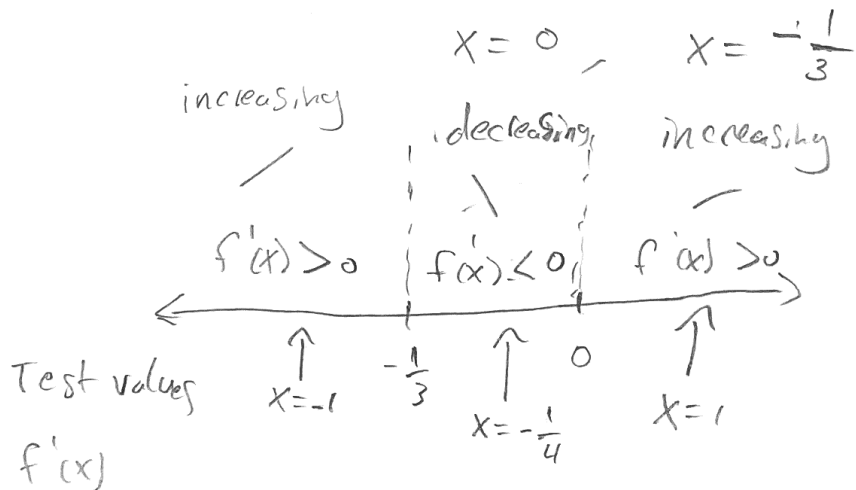 x = 0, x = -1/3
increasing decreasing increasing
f'(x) > 0 f'(x) < 0 f'(x) > 0
-1/3 0
Test values x = -1 x = -1/4 x = 1
f'(x)